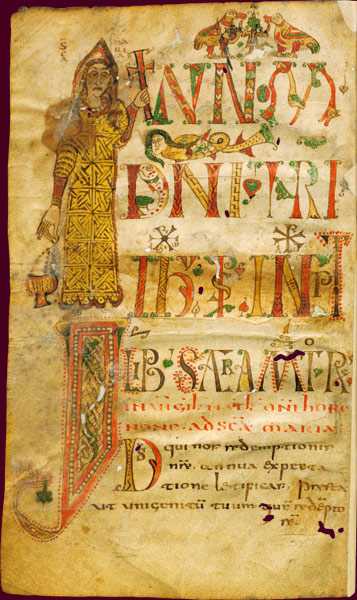 SCA MARIA
NNOM
DNI NTRI
LIB SACRAM
IN VIGIL NTL DNI HORE
NONE. AD SCA MARIA
DS qui nos redemptionis
nre. annua expecta
tione letificas. presta
ut unigenitu tuum que redempto
re